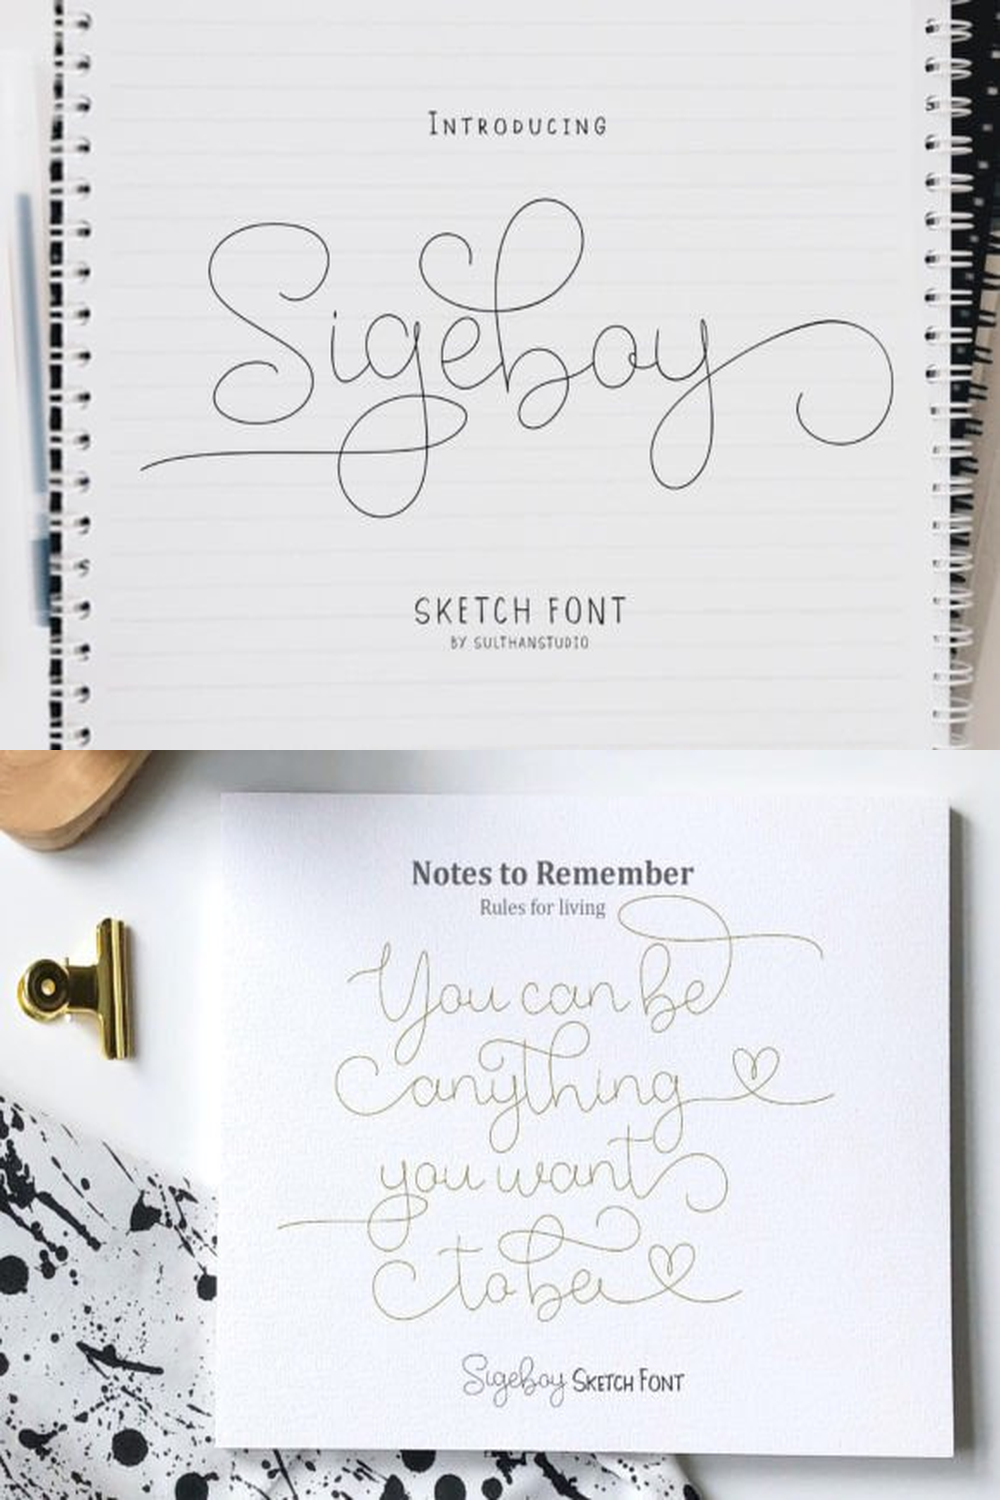 INTRODUCING
Sigeboy
SKETCH FONT
BY SULTHANSTUDIO
Notes to Remember
Rules for living
You can be
anything
you want
to be
Sigeboy SKETCH FONT